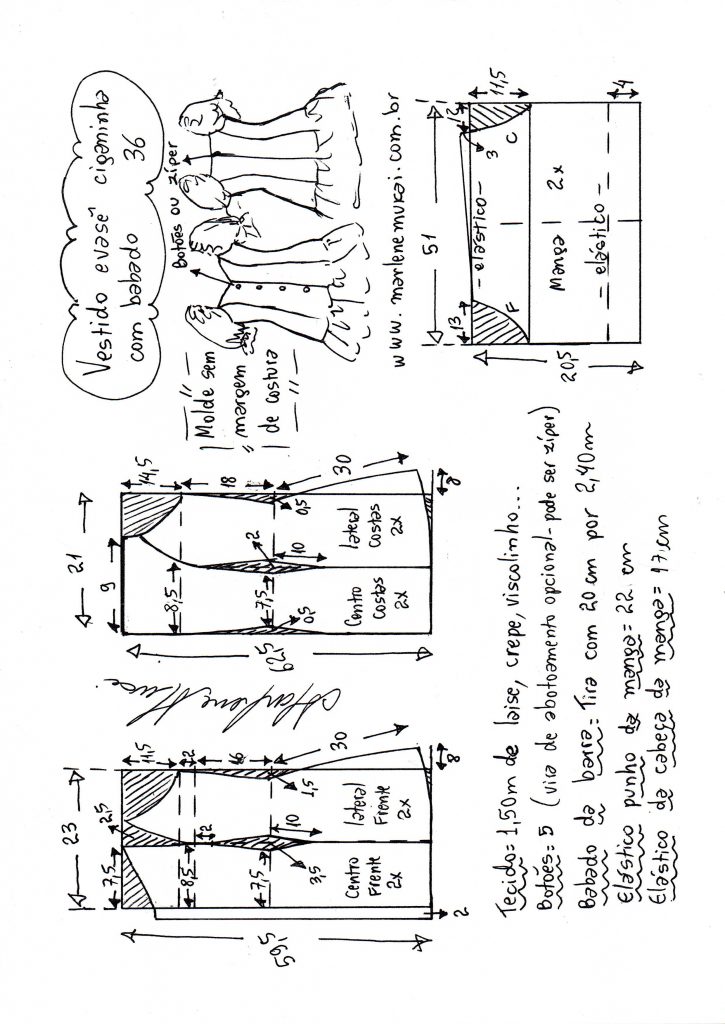 Vestido evasê ciganinha
com babado 36
Botões ou zíper
Molde sem
margem
de costura
www.marlenemukai.com.br
23
7,5
2,5
11,5
2
16
30
8,5
2
7,5
10
3,5
1,5
Centro
Frente
2x
lateral
Frente
2x
59,5
2
8
21
9
14,5
18
30
8,5
2
7,5
10
0,5
0,5
Centro
Costas
2x
lateral
Costas
2x
62,5
8
51
13
12
11,5
3
F
C
- elástico -
Manga 2x
- elástico -
20,5
4
Tecido= 1,50m de laise, crepe, viscolinho...
Botões= 5 (vira de abotoamento opcional- pode ser zíper)
Babado da barra= Tira com 20 cm por 2,40m
Elástico punho da manga= 22 cm
Elástico da cabeça da manga= 17 cm